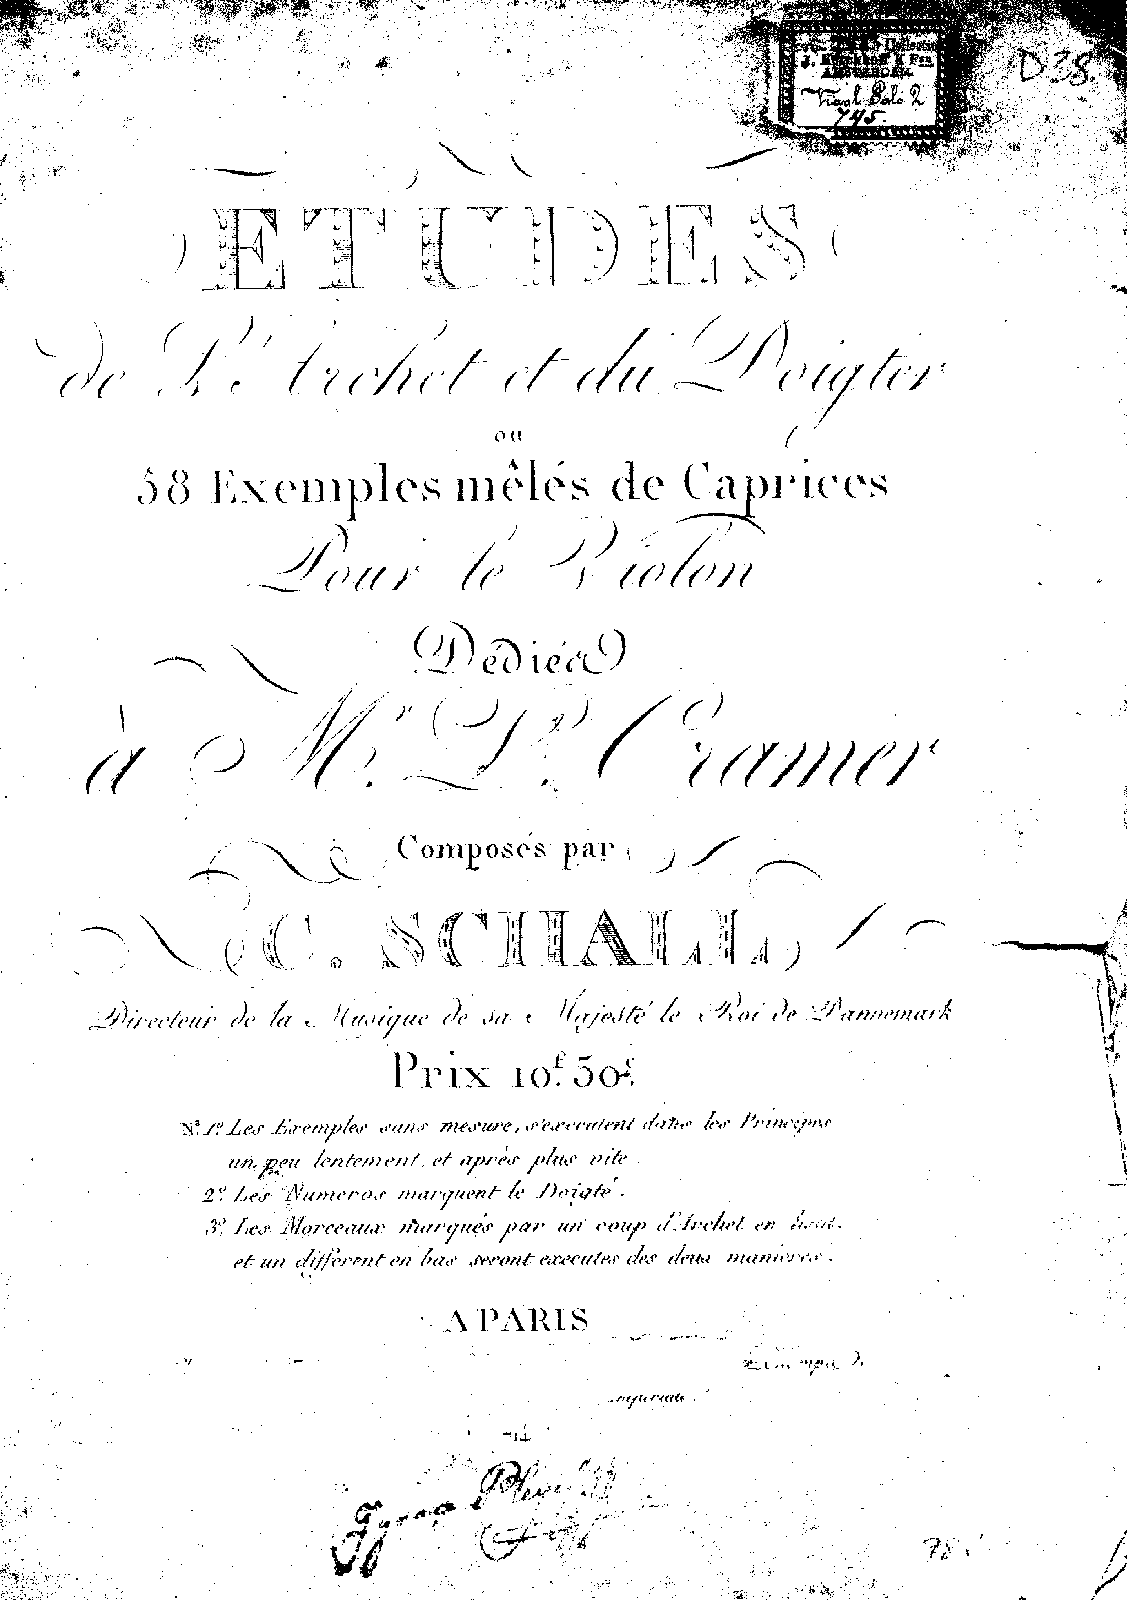 D 38.
AMSTERDAM
745.
ETUDES
de L'Archet et du Doigter
ou
58 Exemples mêlés de Caprices
Pour le Violon
Dédiés
à Mr. Cramer
Composés par
C. SCHALL
Directeur de la Musique de sa Majesté le Roi de Dannemark
Prix 10f. 50c.
Na. 1o. Les Exemples sans mesure, s'executent dans les Principes
un peu lentement et après plus vite
2o. Les Numeros marquent le Doigté.
3o. Les Morceaux marqués par un coup d'Archet en haut.
et un différent en bas seront executés des deux manières.
A PARIS
78